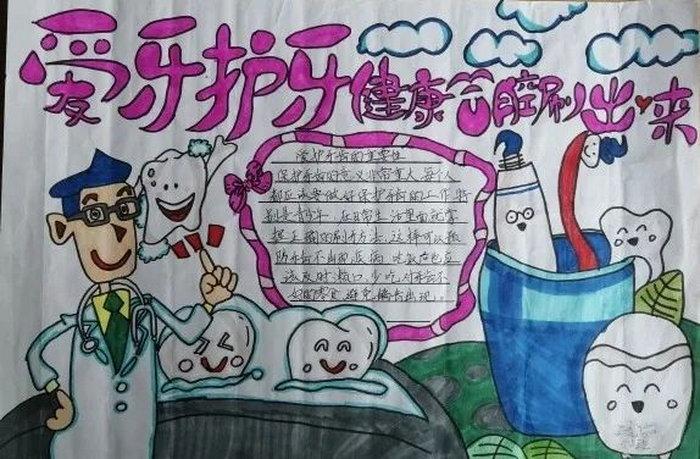 爱牙护牙健康口腔刷出来
爱护牙齿的重要性
保护牙齿的意义非常重大,每个人
都应该要做好保护牙齿的工作,特
别是青少年,在日常生活里面就掌
握正确的刷牙方法,这样可以预
防牙齿不出现疾病
该及时漱口,少吃
的零食,避免龋齿出现。